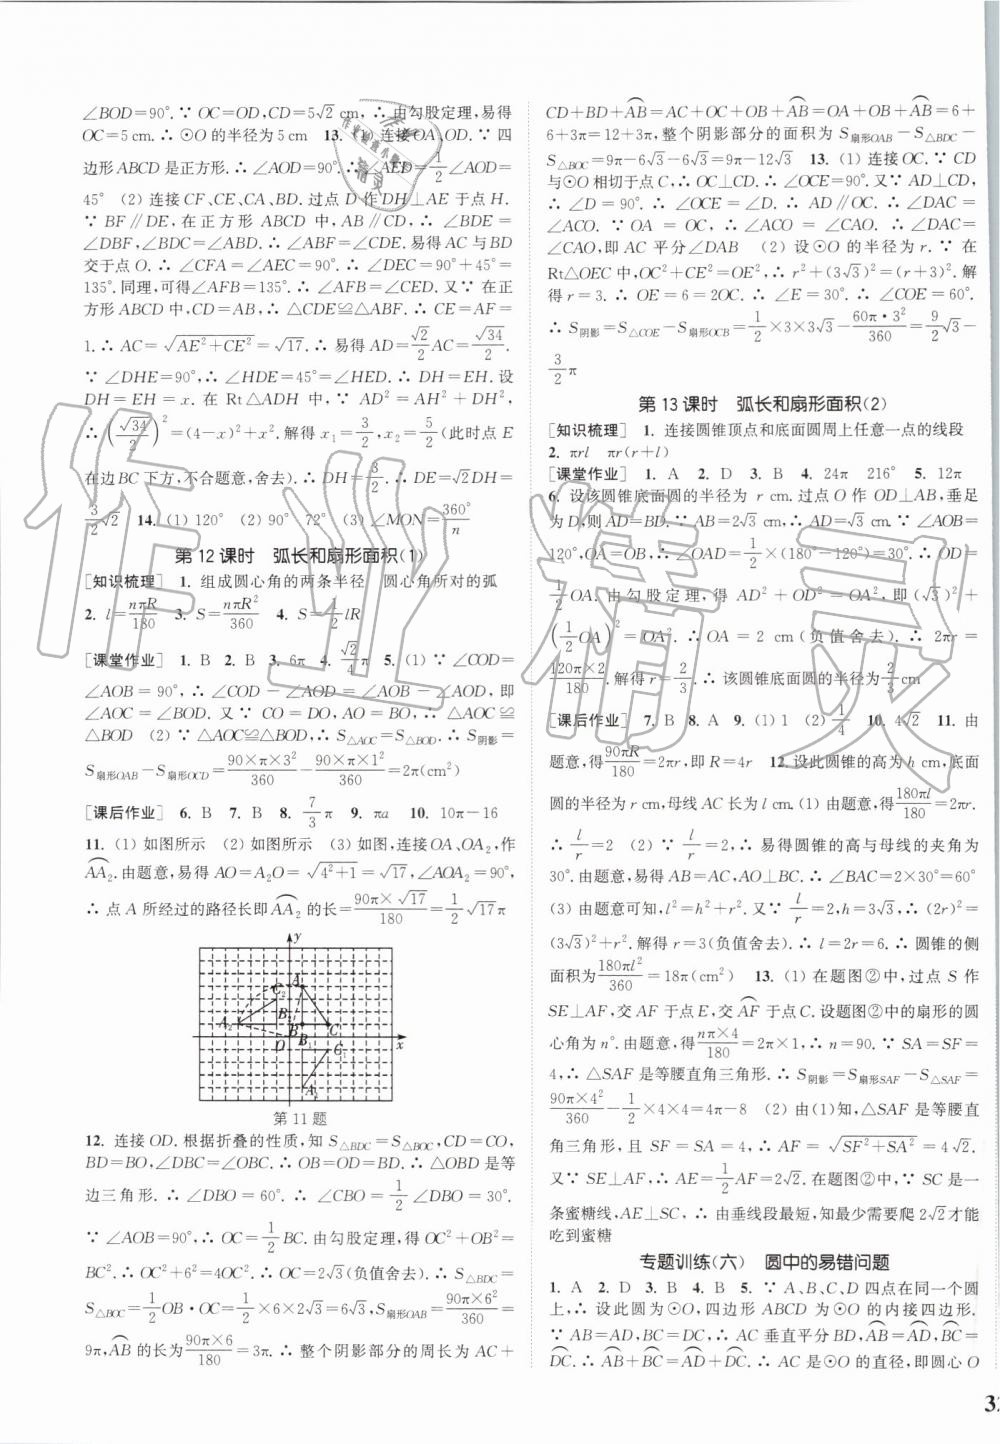 ∠BOD=90°.∵ OC=OD,CD=5√2 cm,∴ 由勾股定理,易得
OC=5 cm.∴ ⊙O的半径为5 cm 13. (1) 连接OA、OD.∵ 四
边形ABCD是正方形.∴ ∠AOD=90°.∴ ∠AED=1/2∠AOD=
45° (2) 连接CF、CE、CA、BD.过点D作DH⊥AE于点H.
∵ BF∥DE,在正方形ABCD中,AB∥CD,∴ ∠BDE=
∠DBF,∠BDC=∠ABD.∴ ∠ABF=∠CDE.易得AC与BD
交于点O.∴ ∠CFA=∠AEC=90°.∴ ∠DEC=90°+45°=
135°.同理,可得∠AFB=135°.∴ ∠AFB=∠CED.又∵ 在正
方形ABCD中,CD=AB,∴ △CDE≌△ABF.∴ CE=AF=
1.∴ AC=√(AE²+CE²)=√17.∴ 易得AD=√2/2 AC=√34/2.
∵ ∠DHE=90°,∴ ∠HDE=∠HED=45°.∴ DH=EH.设
DH=EH=x.在Rt△ADH中,∵ AD²=AH²+DH²,
∴ (√34/2)²=(4-x)²+x².解得x₁=3/2,x₂=5/2(此时点E
在边BC下方,不合题意,舍去).∴ DH=3/2.∴ DE=√2DH=
3/2√2 14. (1) 120° (2) 90° 72° (3) ∠MON=360°/n
第12课时 弧长和扇形面积(1)
[知识梳理] 1. 组成圆心角的两条半径 圆心角所对的弧
2. l=nπR/180 3. S=nπR²/360 4. S=1/2 lR
[课堂作业] 1. B 2. B 3. 6π 4. √2/4 π 5. (1) ∵ ∠COD=
∠AOB=90°,∴ ∠COD-∠AOD=∠AOB-∠AOD,即
∠AOC=∠BOD.又∵ CO=DO,AO=BO,∴ △AOC≌
△BOD (2) ∵ △AOC≌△BOD,∴ S△AOC=S△BOD.∴ S阴影=
S扇形OAB-S扇形OCD=90×π×3²/360-90×π×1²/360=2π(cm²)
[课后作业] 6. B 7. B 8. 7/3 π 9. πa 10. 10π-16
11. (1) 如图所示 (2) 如图所示 (3) 如图,连接OA、OA₂,作
⌒AA₂.由题意,易得AO=A₂O=√(4²+1)=√17,∠AOA₂=90°,
∴ 点A所经过的路径长即⌒AA₂的长=90π×√17/180=1/2√17π
y
A
C₂
B₂
A₂
B
C
O
B₁
x
C₁
A₁
第11题
12. 连接OD.根据折叠的性质,知S△BDC=S△BOC,CD=CO,
BD=BO,∠DBC=∠OBC.∴ OB=OD=BD.∴ △OBD是等
边三角形.∴ ∠DBO=60°.∴ ∠CBO=1/2∠DBO=30°.
∵ ∠AOB=90°,∴ OC=1/2BC.由勾股定理,得OC²+OB²=
BC².∴ OC²+6²=4OC².∴ OC=2√3(负值舍去).∴ S△BDC=
S△BOC=1/2OB·OC=1/2×6×2√3=6√3,S扇形OAB=90π×6²/360=
9π,⌒AB的长=90π×6/180=3π.∴ 整个阴影部分的周长为AC+
CD+BD+⌒AB=AC+OC+OB+⌒AB=OA+OB+⌒AB=6+
6+3π=12+3π,整个阴影部分的面积为S扇形OAB-S△BDC-
S△BOC=9π-6√3-6√3=9π-12√3 13. (1) 连接OC.∵ CD
与⊙O相切于点C,∴ OC⊥CD.∴ ∠OCE=90°.又∵ AD⊥CD,
∴ ∠D=90°.∴ ∠OCE=∠D.∴ AD∥OC.∴ ∠DAC=
∠ACO.∵ OA=OC,∴ ∠ACO=∠CAO.∴ ∠DAC=
∠CAO,即AC平分∠DAB (2) 设⊙O的半径为r.∵ 在
Rt△OEC中,OC²+CE²=OE²,∴ r²+(3√3)²=(r+3)².解
得r=3.∴ OE=6=2OC.∴ ∠E=30°.∴ ∠COE=60°.
∴ S阴影=S△COE-S扇形OCB=1/2×3×3√3-60π·3²/360=9/2√3-
3/2 π
第13课时 弧长和扇形面积(2)
[知识梳理] 1. 连接圆锥顶点和底面圆周上任意一点的线段
2. πrl πr(r+l)
[课堂作业] 1. A 2. D 3. B 4. 24π 216° 5. 12π
6. 设该圆锥底面圆的半径为r cm.过点O作OD⊥AB,垂足
为D,则AD=BD.∵ AB=2√3 cm,∴ AD=√3 cm.∵ ∠AOB=
120°,OA=OB,∴ ∠OAB=1/2×(180°-120°)=30°.∴ OD=
1/2OA.由勾股定理,得AD²+OD²=OA²,即(√3)²+
(1/2OA)²=OA².∴ OA=2 cm(负值舍去).∴ 2πr=
120π×2/180.解得r=2/3.∴ 该圆锥底面圆的半径为2/3cm
[课后作业] 7. B 8. A 9. (1) 1 (2) 1/4 10. 4√2 11. 由
题意,得90πR/180=2πr,即R=4r 12. 设此圆锥的高为h cm,底面
圆的半径为r cm,母线AC长为l cm.(1) 由题意,得180πl/180=2πr.
∴ l/r=2 (2) ∵ l/r=2,∴ 易得圆锥的高与母线的夹角为
30°.由题意,易得AB=AC,AO⊥BC.∴ ∠BAC=2×30°=60°
(3) 由题意可知,l²=h²+r².又∵ l/r=2,h=3√3,∴ (2r)²=
(3√3)²+r².解得r=3(负值舍去).∴ l=2r=6.∴ 圆锥的侧
面积为180πl²/360=18π(cm²) 13. (1) 在题图②中,过点S作
SE⊥AF,交AF于点E,交⌒AF于点C.设题图②中的扇形的圆
心角为n°.由题意,得nπ×4/180=2π×1,∴ n=90.∵ SA=SF=
4,∴ △SAF是等腰直角三角形.∴ S阴影=S扇形SAF-S△SAF=
90π×4²/360-1/2×4×4=4π-8 (2) 由(1)知,△SAF是等腰直
角三角形,且SF=SA=4,∴ AF=√(SF²+SA²)=4√2.
又∵ SE⊥AF,∴ AE=1/2AF=2√2.在题图②中,∵ SC是一
条蜜糖线,AE⊥SC,∴ 由垂线段最短,知最少需要爬2√2才能
吃到蜜糖
专题训练(六) 圆中的易错问题
1. A 2. D 3. B 4. B 5. ∵ A、B、C、D四点在同一个圆
上,∴ 设该圆为⊙O,四边形ABCD为⊙O的内接四边形.
∵ AB=AD,BC=DC,∴ AC垂直平分BD,⌒AB=⌒AD,⌒BC=
⌒DC.∴ ⌒AB+⌒BC=⌒AD+⌒DC.∴ AC是⊙O的直径,即圆心O
作业精灵